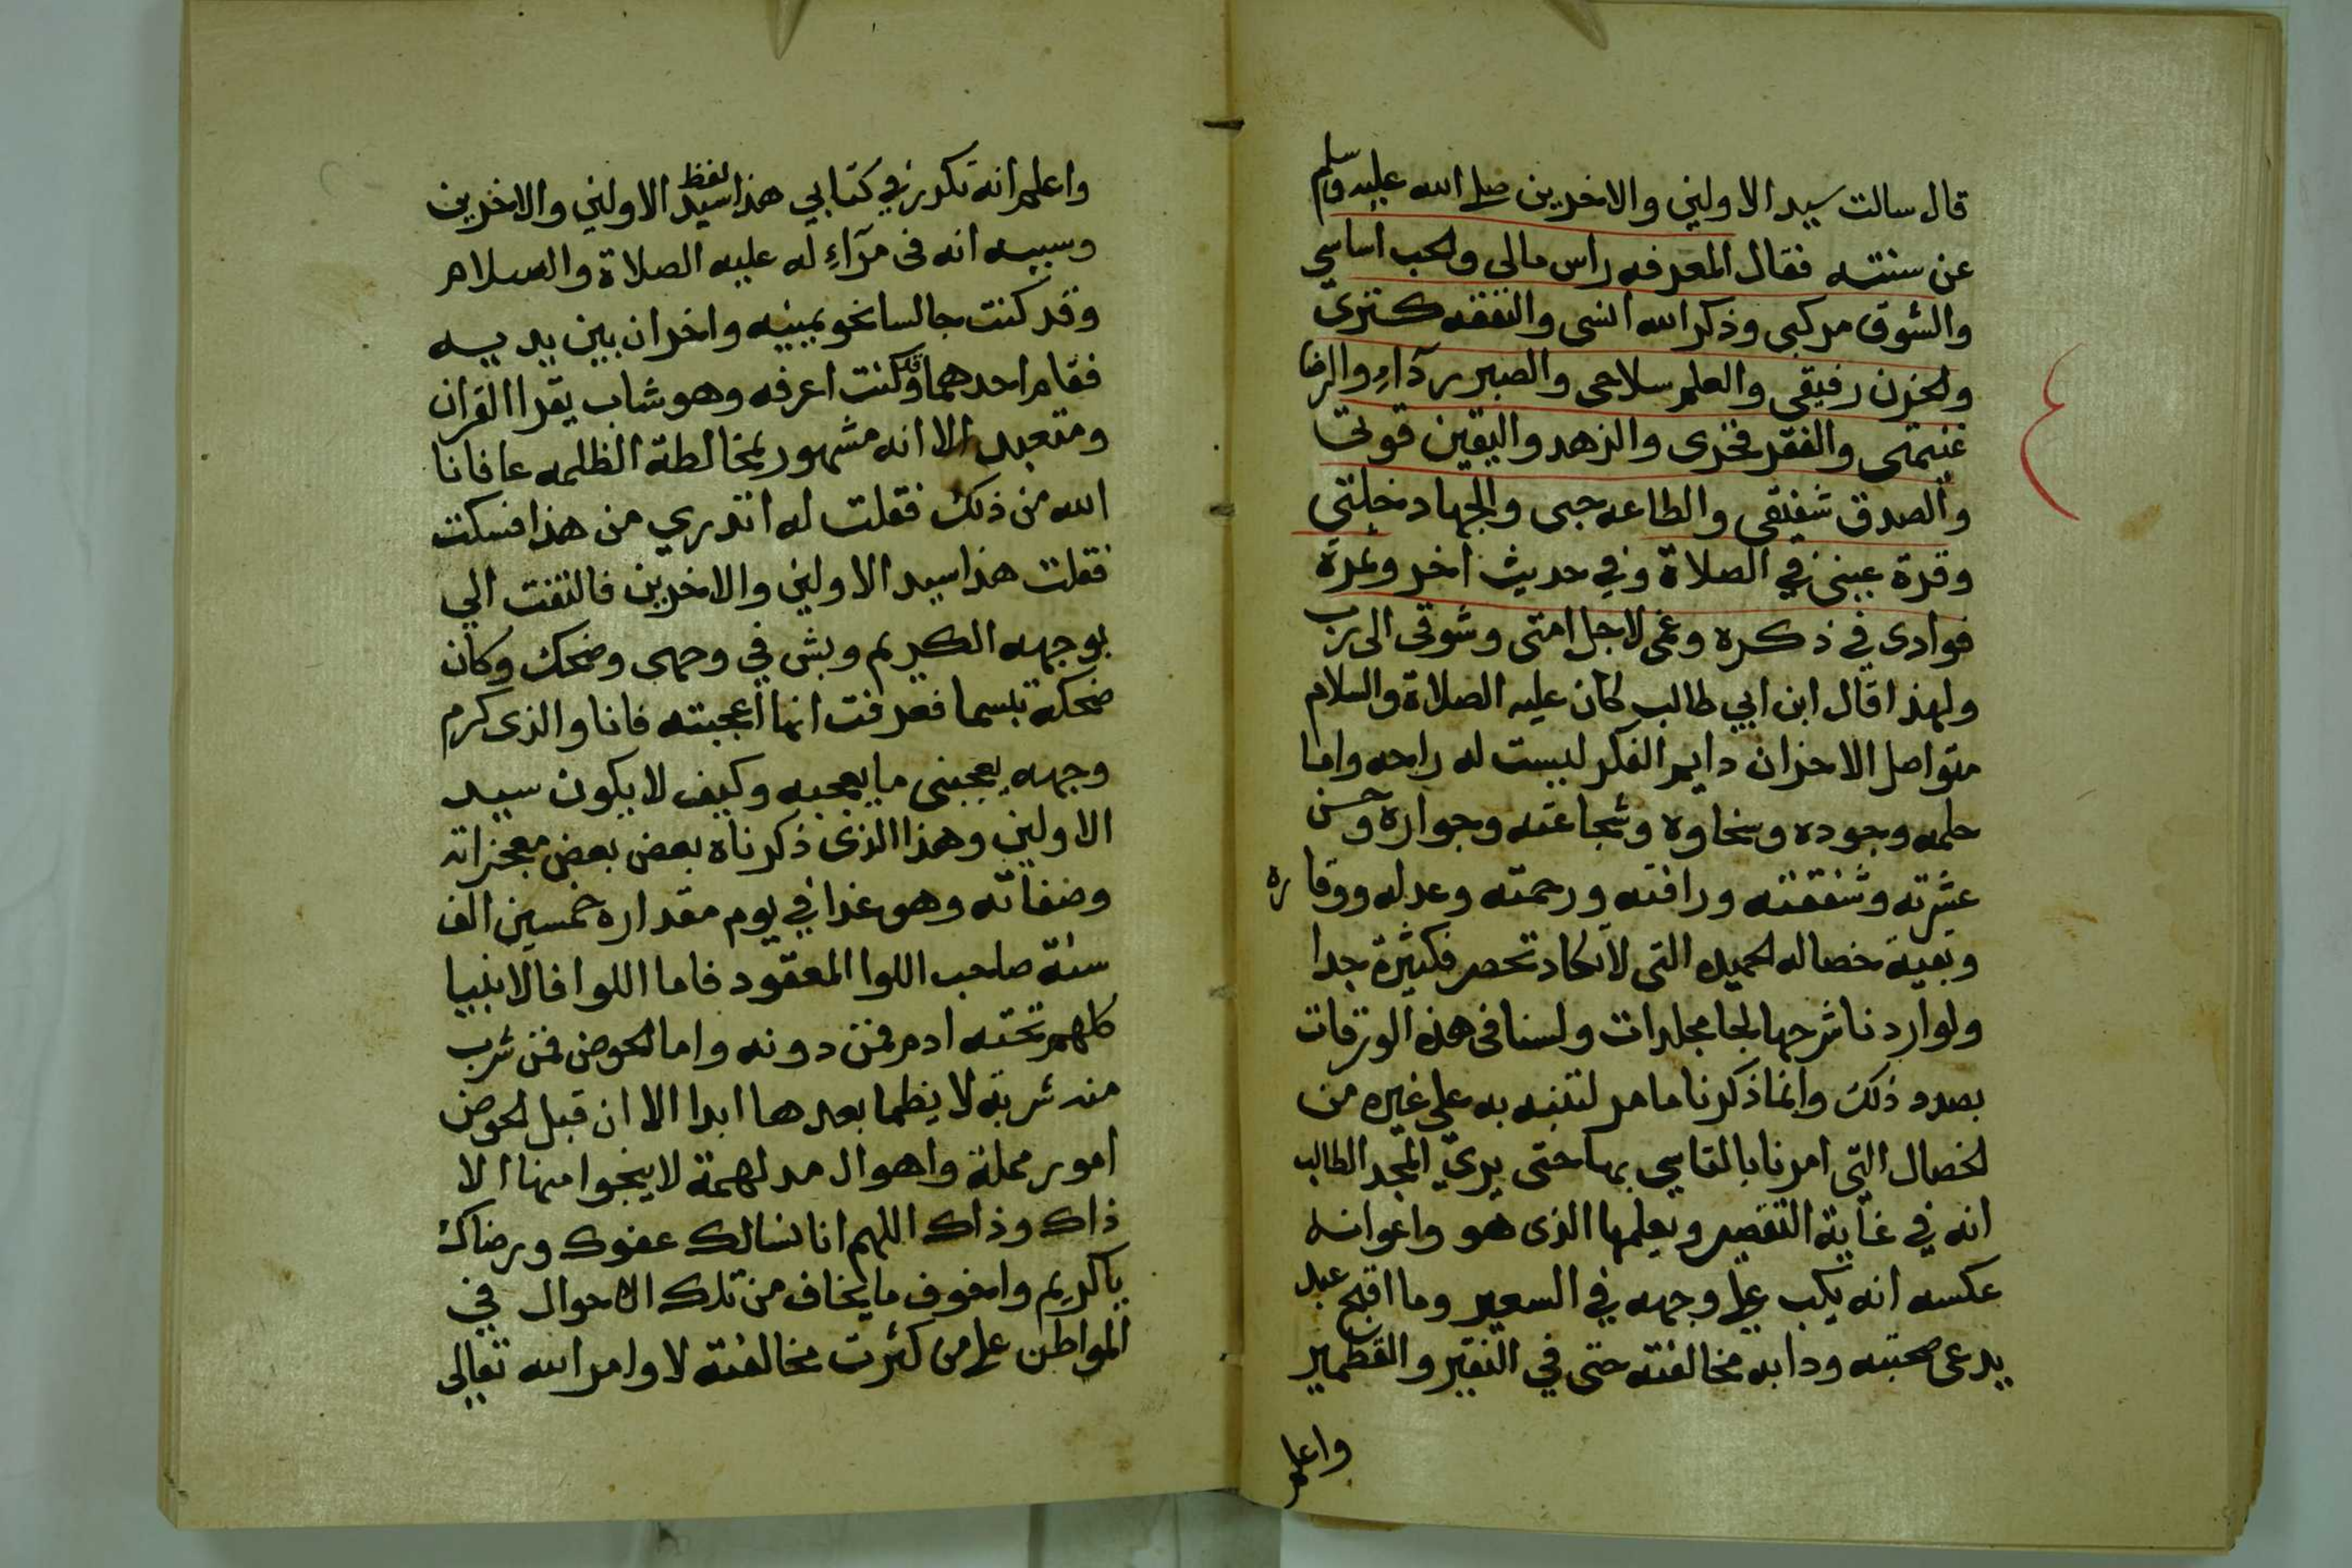 قال سالت سيد الاولين والاخرين صلى الله عليه وسلم
عن سنته فقال المعرفه راس مالي والحب اساسي
والشوق مركبي وذكر الله انسي والثقه كنزي
والحزن رفيقي والعلم سلاحي والصبر ردآءِ والرضا
غنيمتي والفقر فخري والزهد واليقين قوتي
والصدق شفيقي والطاعه حبي والجهاد خلتي
وقرة عيني في الصلاة وفي حديث اخر وثمرة
فوادي في ذكره وغمي لاجل امتي وشوقي الى رب
ولهذا قال ابن ابي طالب كان عليه الصلاة والسلام
متواصل الاحزان دايم الفكر ليست له راحه واما
حلمه وجوده وسخاوه وشجاعته وجواره وحسن
عشرته وشفقته ورافته ورحمته وعدله ووقاره
وبقية خصاله الحميده التي لا تكاد تحصر فكثيرة جدا
ولو اردنا شرحها لجا مجلدات ولسنا في هذه الورقات
بصدد ذلك وانما ذكرنا ما مر لنتنبه به على غيره من
الخصال التي امرنا بالتاسي بها حتى يري المجد الطالب
انه في غاية التقصير ويعلمها الذي هو واعوانه
عكسه انه يكب على وجهه في السعير وما اقبح عبد
يدعي صحبته ودابه مخالفته حتى في النقير والقطمير
واعلم
واعلم انه تكرر في كتابي هذا لفظ سيد الاولين والاخرين
وسببه انه في مرآءِ له عليه الصلاة والسلام
وقد كنت جالسا نحو يمينه واخران بين يديه
فقام احدهما وكنت اعرفه وهو شاب يقرا القران
ومتعبد الا انه مشهور بمخالطة الظلمه عافانا
الله من ذلك فقلت له اتدري من هذا فسكت
فقلت هذا سيد الاولين والاخرين فالتفت الي
بوجهه الكريم وبش في وجهي وضحك وكان
ضحكه تبسما فعرفت انها اعجبته فانا والذي كرم
وجهه يعجبني ما يعجبه وكيف لا يكون سيد
الاولين وهذا الذي ذكرناه بعض بعض معجزاته
وصفاته وهو غدا في يوم مقداره خمسين الف
سنة صاحب اللوا المعقود فاما اللوا فالانبيا
كلهم تحته ادم فمن دونه واما الحوض فمن شرب
منه شربة لا يظما بعدها ابدا الا ان قبل الحوض
امور مهلة واهوال مدلهمة لا ينجوا منها الا
ذاك وذاك اللهم انا نسالك عفوك ورضاك
ياكريم واخوف ما يخاف من تلك الاحوال في
المواطن على من كثرت مخالفته لاوامر الله تعالى